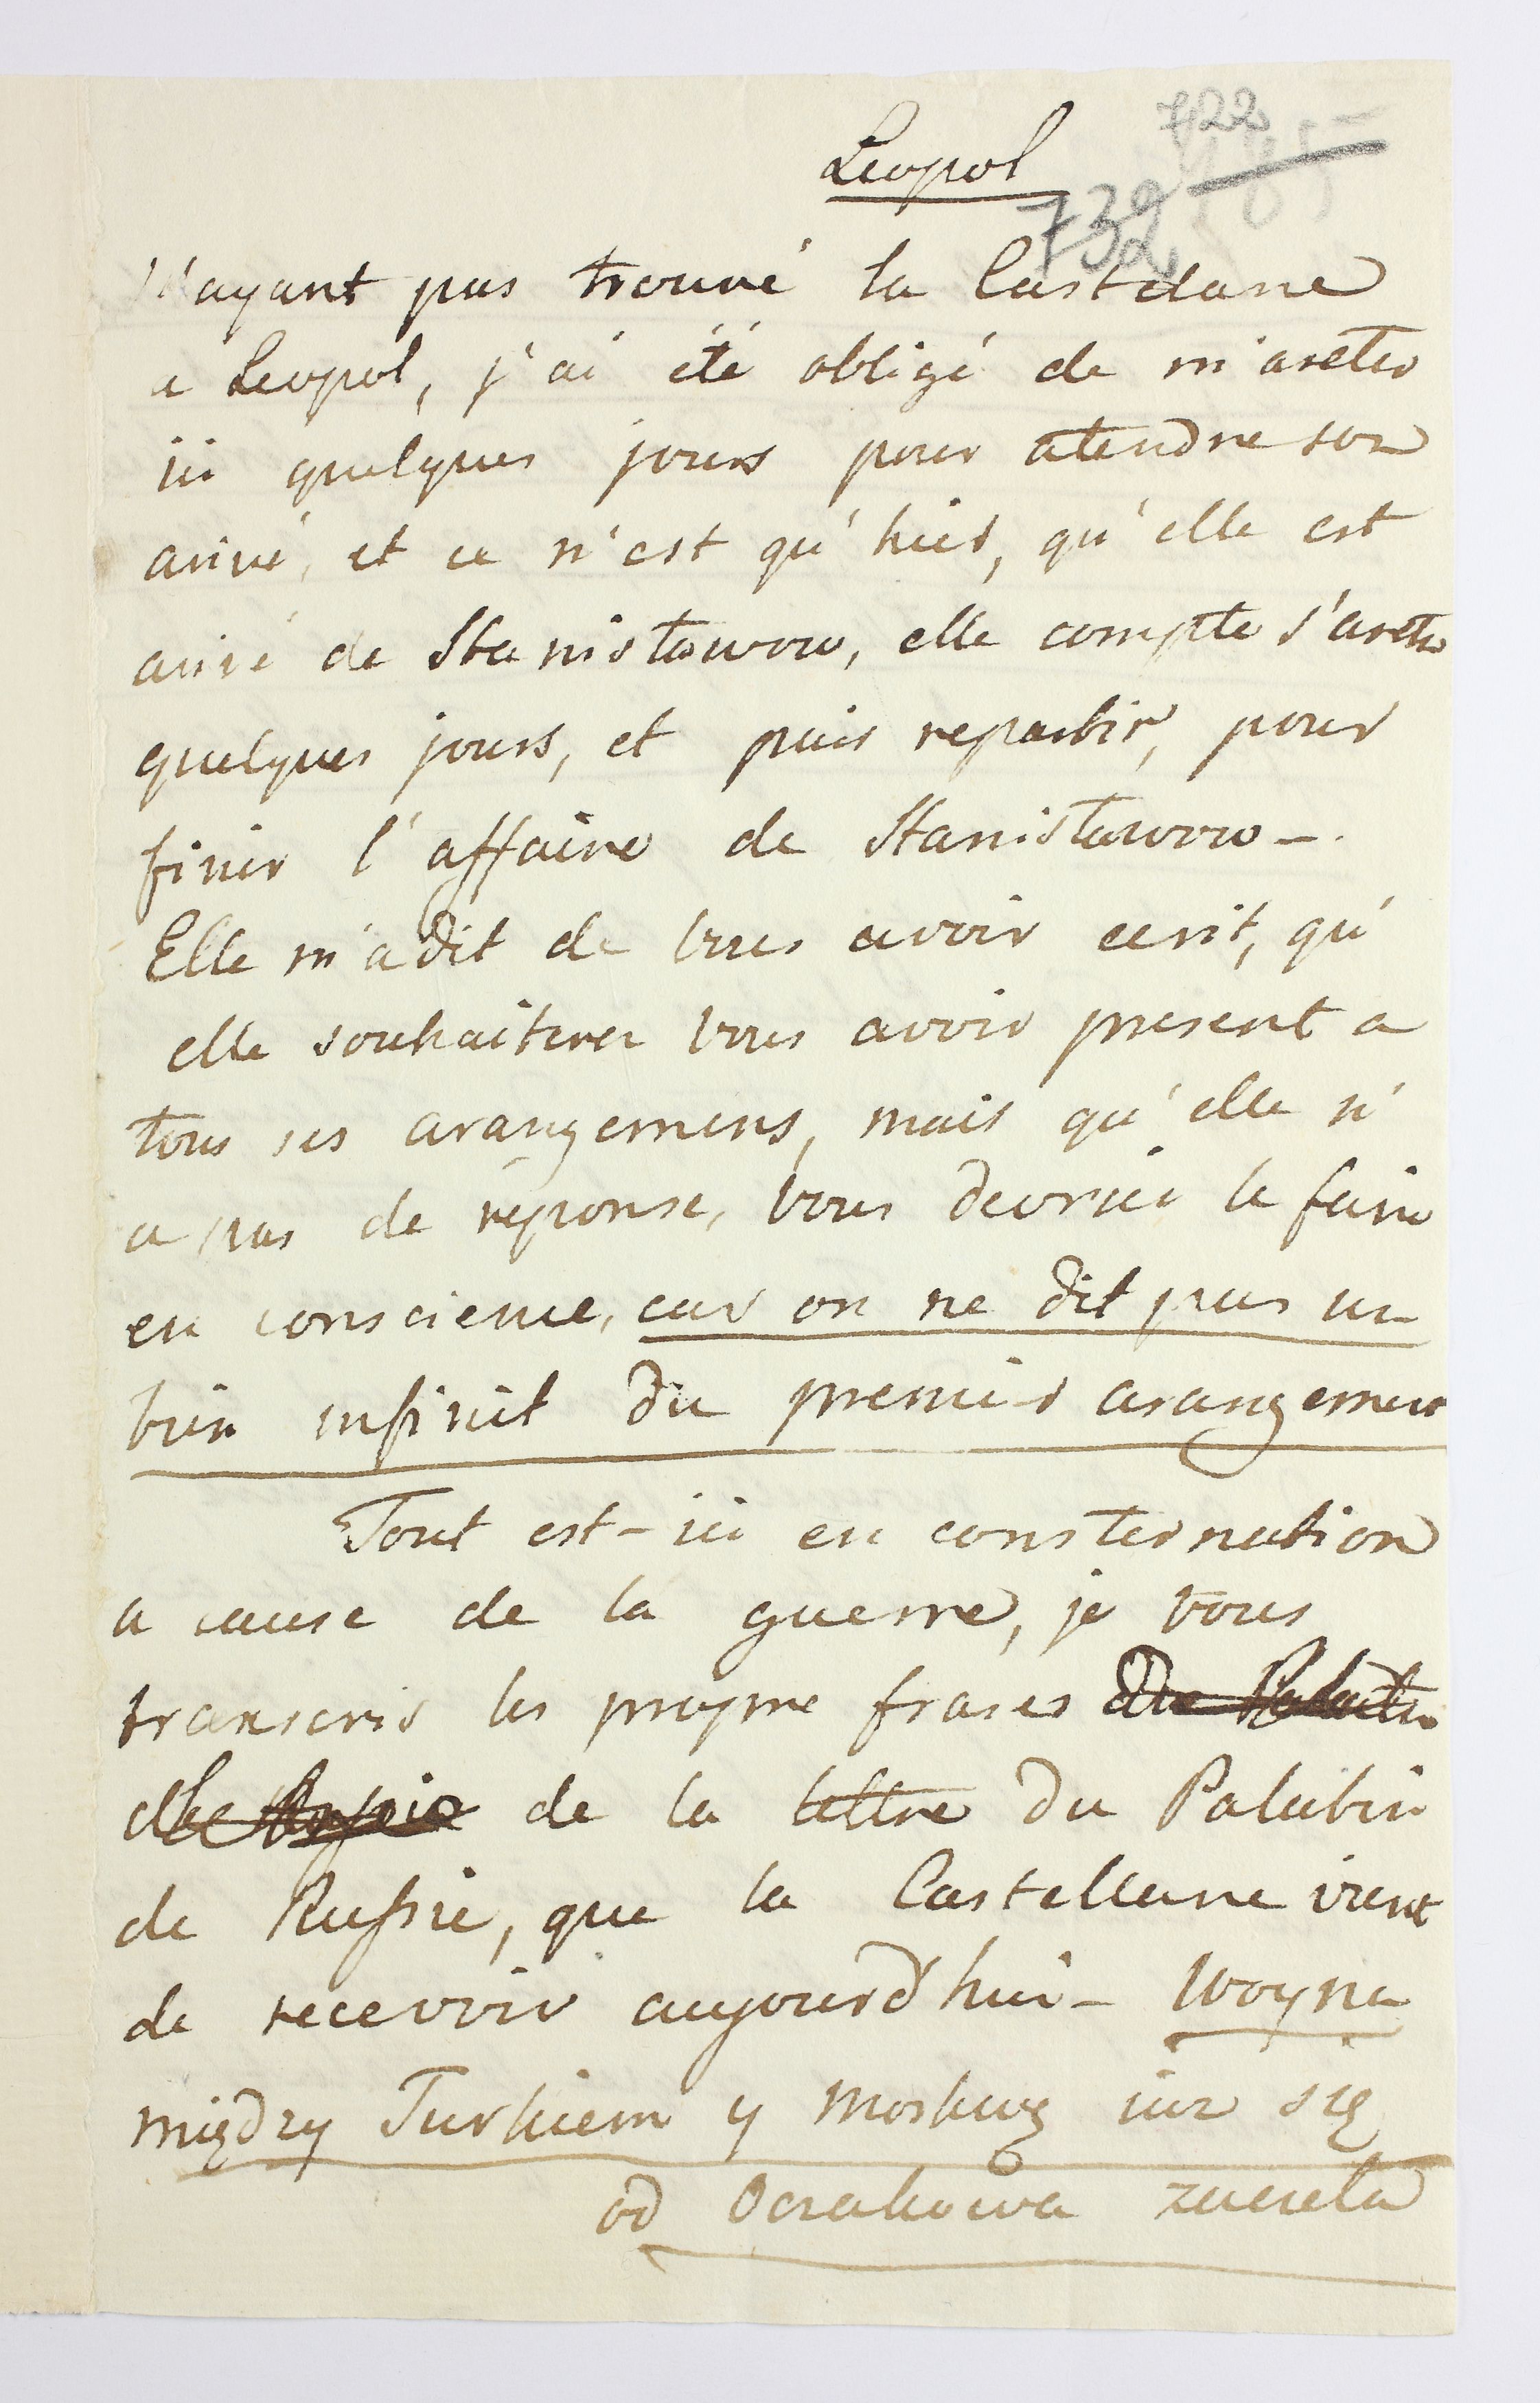 722
Leopol
732
N'ayant pas trouvé la Castelane
a Leopol, j'ai été obligé de m'areter
ici quelques jours pour atendre son
arivé, et ce n'est qu'hier, qu'elle est
arivé de Stanisławow, elle compte s'areter
quelques jours, et puis repartir, pour
finir l'affaire de Stanisławow -.
Elle m'a dit de vous avoir ecrit, qu'
elle souhaiterer vous avoir present a
tous ses arangemens, mais qu'elle n'
a pas de réponse, vous devriez le faire
en conscience, car on ne dit pas un
bien infinit du premier arangement
Tout est-ici en consternation
a cause de la guerre, je vous
transcris les propre frases du Palatin
de Russie de la lettre du Palatin
de Russie, que la Castellane vient
de recevoir aujourd'hui - Woyna
między Turkiem y Moskwą iuz się
od Oczakowa zaczeła